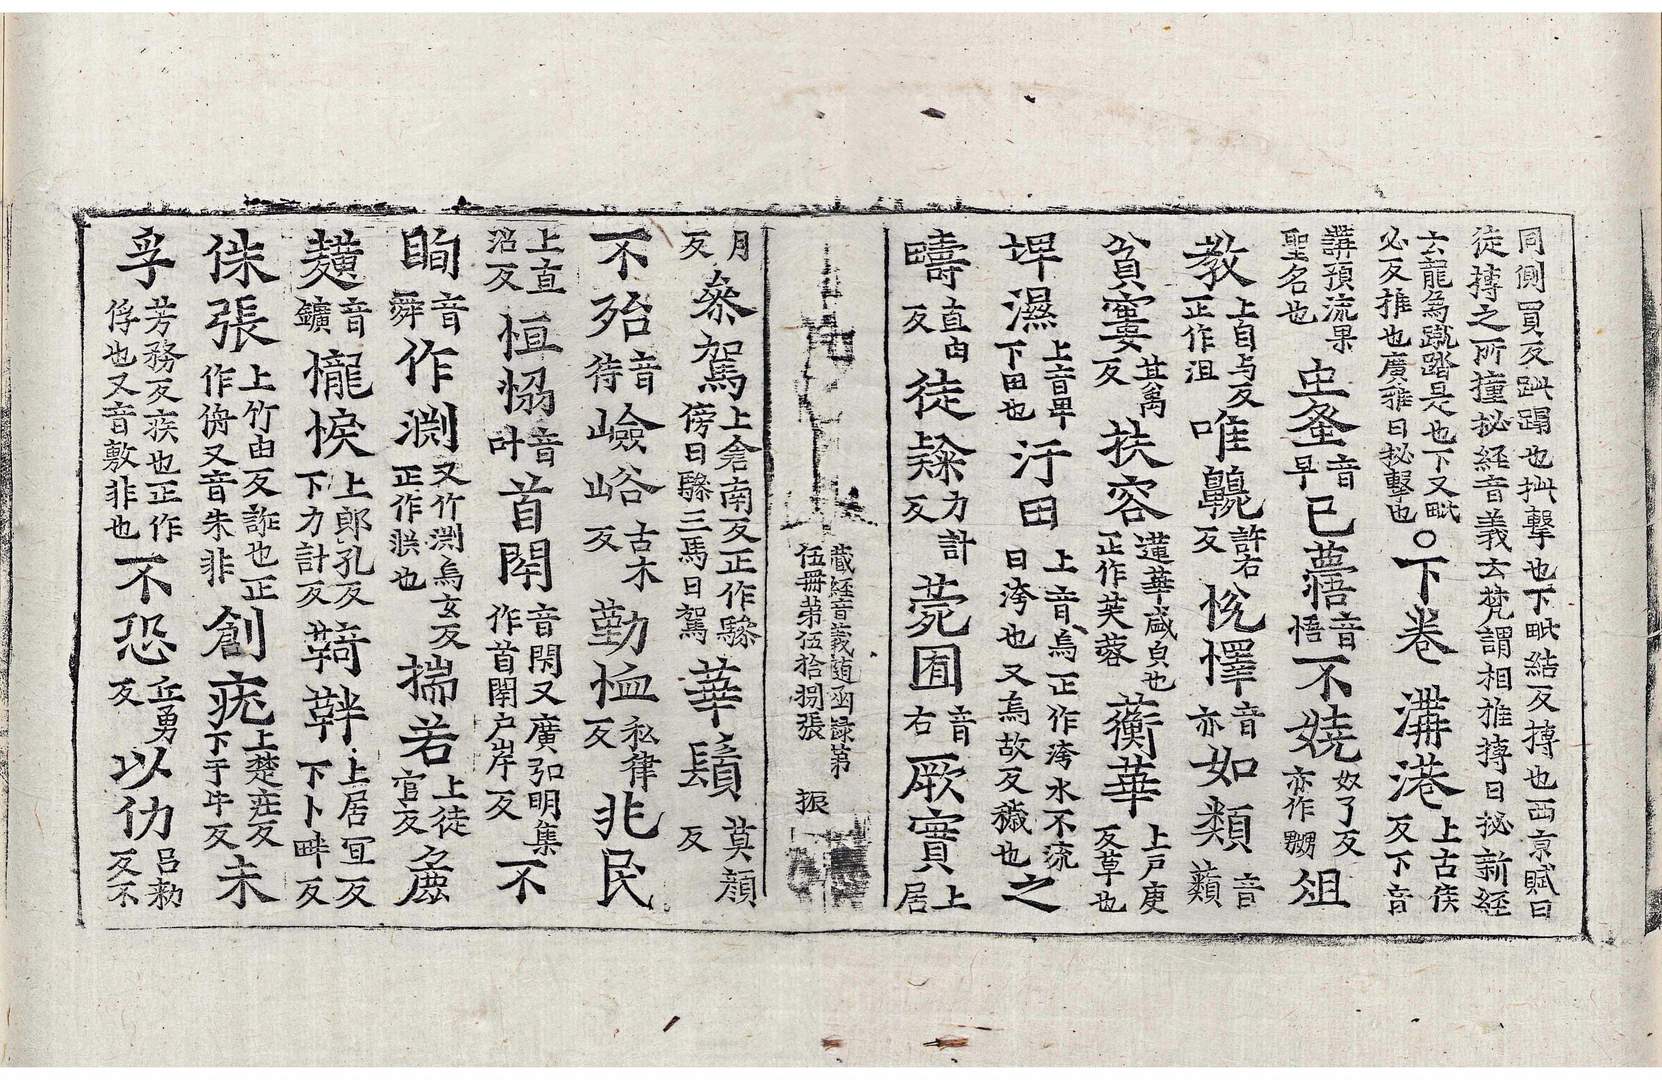 同側買反跐蹋也㧗擊也下毗結反摶也西京賦曰徒摶之所撞㧙經音義云梵謂相推摶曰㧙新經
云龍為蹴踏是也下又毗必反推也廣雅曰㧙擊也○下卷 溝港上古侯反下音
講預流果聖名也䖝蚤音早已音悟不嬈奴了反亦作嬲俎
教上自与反正作沮唯許右反悅懌音亦如類音蘱
貧窶其禹反扶容蓮華咸貞也正作芙蓉蘅華上戸庚反草也
埤濕上音卑下田也汙田上音烏正作洿水不流曰洿也又烏故反穢也之
疇直由反徒力計反菀囿音右厥實上居
藏經音義随函録第伍冊第伍拾捌張 振
月反叅駕上倉南反正作驂傍曰驂三馬曰駕華鬚莫顔反
不殆音待嶮峪古木反勤恤私律反兆民
上直沼反恒恊音叶首閇音閑又廣弘明集作首閈户岸反不
眴音舜作渕又竹渕烏玄反正作洪也揣若上徒官反麁
音鑛悷上郎孔反下力計反䩭靽上居冝反下卜畔反
侏張上竹由反詐也正作侜又音朱非創疣上楚庄反下于牛反未
孚芳務反疾也正作俘也又音敷非也不恐丘勇反以仂吕勑反不